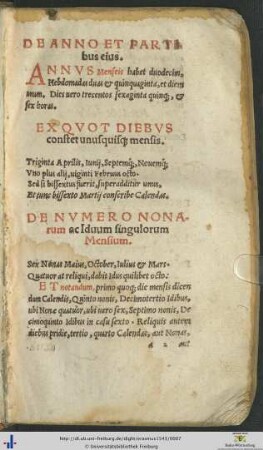 DE ANNO ET PARTI
bus eius.
ANNVS Menseis habet duodecim,
Hebdomadas duas & quinquaginta, et diem
unum. Dies uero trecentos sexaginta quinq;, &
sex horas.
EX QVOT DIEBUS
constet unusquisq; mensis.
Triginta Aprilis, Iunij, Septemq;, Nouemq;,
Vno plus alij, uiginti Februus octo.
Sed si bissextus fuerit, superadditur unus,
Et tunc bissexto Martij conscribe Calendas.
DE NVMERO NONA
rum ac Iduum singulorum
Mensium.
Sex Nonas Maius, October, Iulius & Mars.
Quatuor at reliqui, dabit Idus quilibet octo.
ET notandum, primo quoq; die mensis dicen
dum Calendis, Quinto nonis, Decimotertio Idibus,
ubi Nonæ quatuor, ubi uero sex, Septimo nonis, De
cimoquinto Idibus in casu sexto. Reliquis autem
diebus pridie, tertio, quarto Calendas, aut Nonas,
a 2 aut
http://dl.ub.uni-freiburg.de/diglit/erasmus1543/0007
© Universitätsbibliothek Freiburg